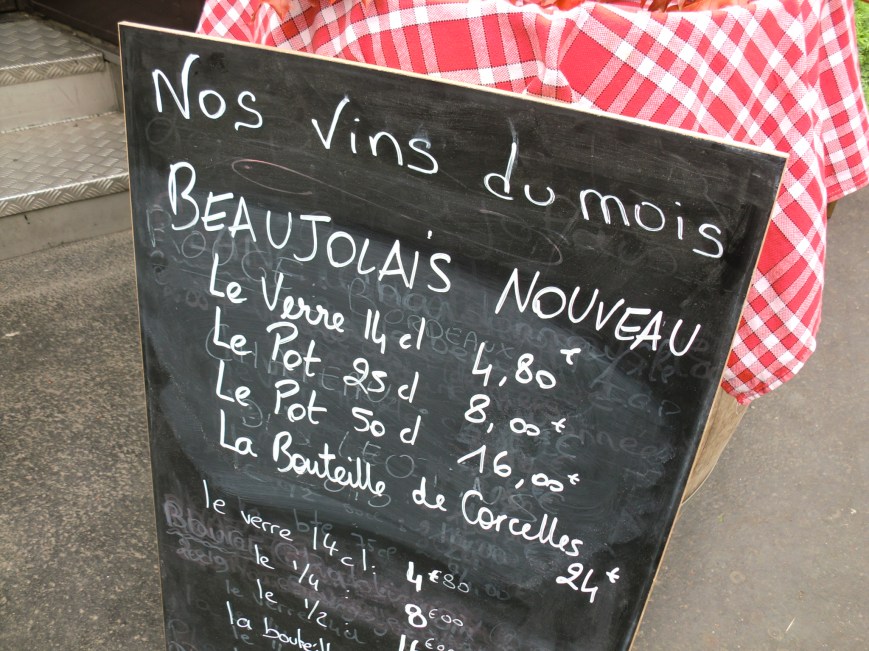 Nos vins du mois
BEAUJOLAIS NOUVEAU
Le Verre 14 cl 4,80 €
Le Pot 25 cl 8,00 €
Le Pot 50 cl 16,00 €
La Bouteille de Corcelles 24 €
le verre 14 cl: 4€80
le 1/4 : 8€00
le 1/2 :
la bouteille